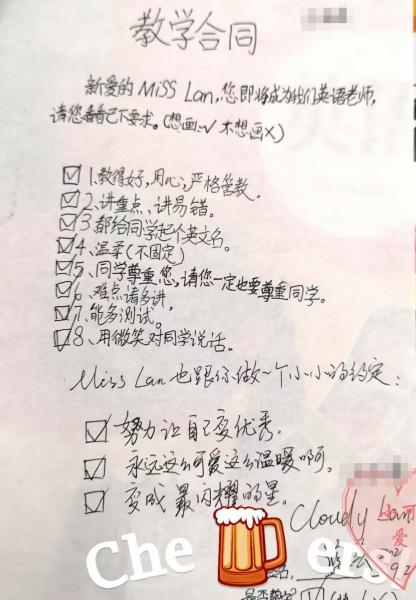 教学合同
亲爱的 Miss Lan,您即将成为我们英语老师,
请您看看已下要求。(想画:√ 不想画×)
☑ 1.教得好,用心,严格管教。
☑ 2.讲重点、讲易错。
☑ 3.都给同学起个英文名。
☑ 4.温柔(不固定)
☑ 5.同学尊重您,请您一定也要尊重同学。
☑ 6.难点请多讲。
☑ 7.能多测试。
☑ 8.用微笑对同学说话。
Miss Lan 也跟你做一个小小的约定:
☑ 努力让自己变优秀。
☑ 永远这么可爱这么温暖啊。
☑ 变成最闪耀的星。
Cloudy Lan
可爱
Che ers